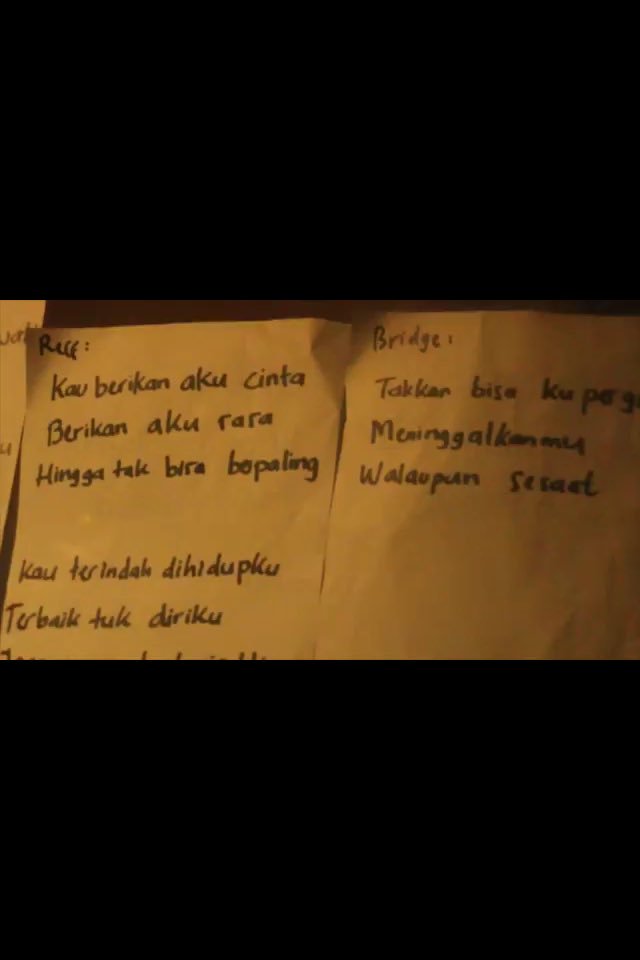 Reff:
Kau berikan aku cinta
Berikan aku rasa
Hingga tak bisa bepaling
Kau terindah dihidupku
Terbaik tuk diriku
Bridge:
Takkan bisa ku perg
Meninggalkanmu
Walaupun sesaat